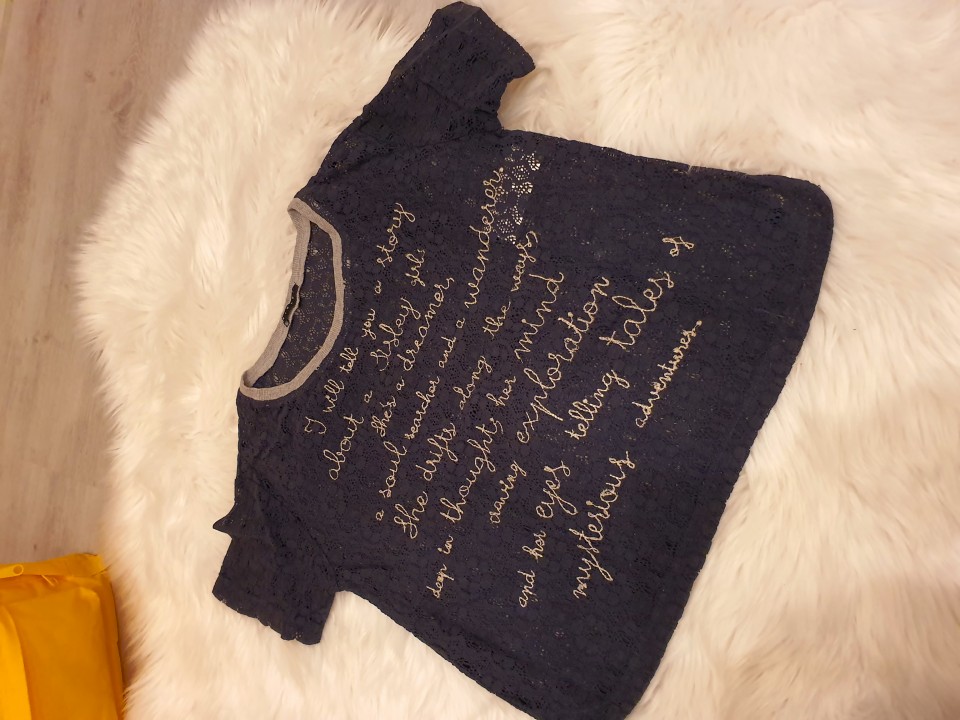 I will tell you a story
about a Sisley girl.
She's a dreamer,
a soul searcher and a wanderer.
She drifts along the ways,
deep in thought, her mind
craving exploration
and her eyes telling tales of
mysterious adventures.